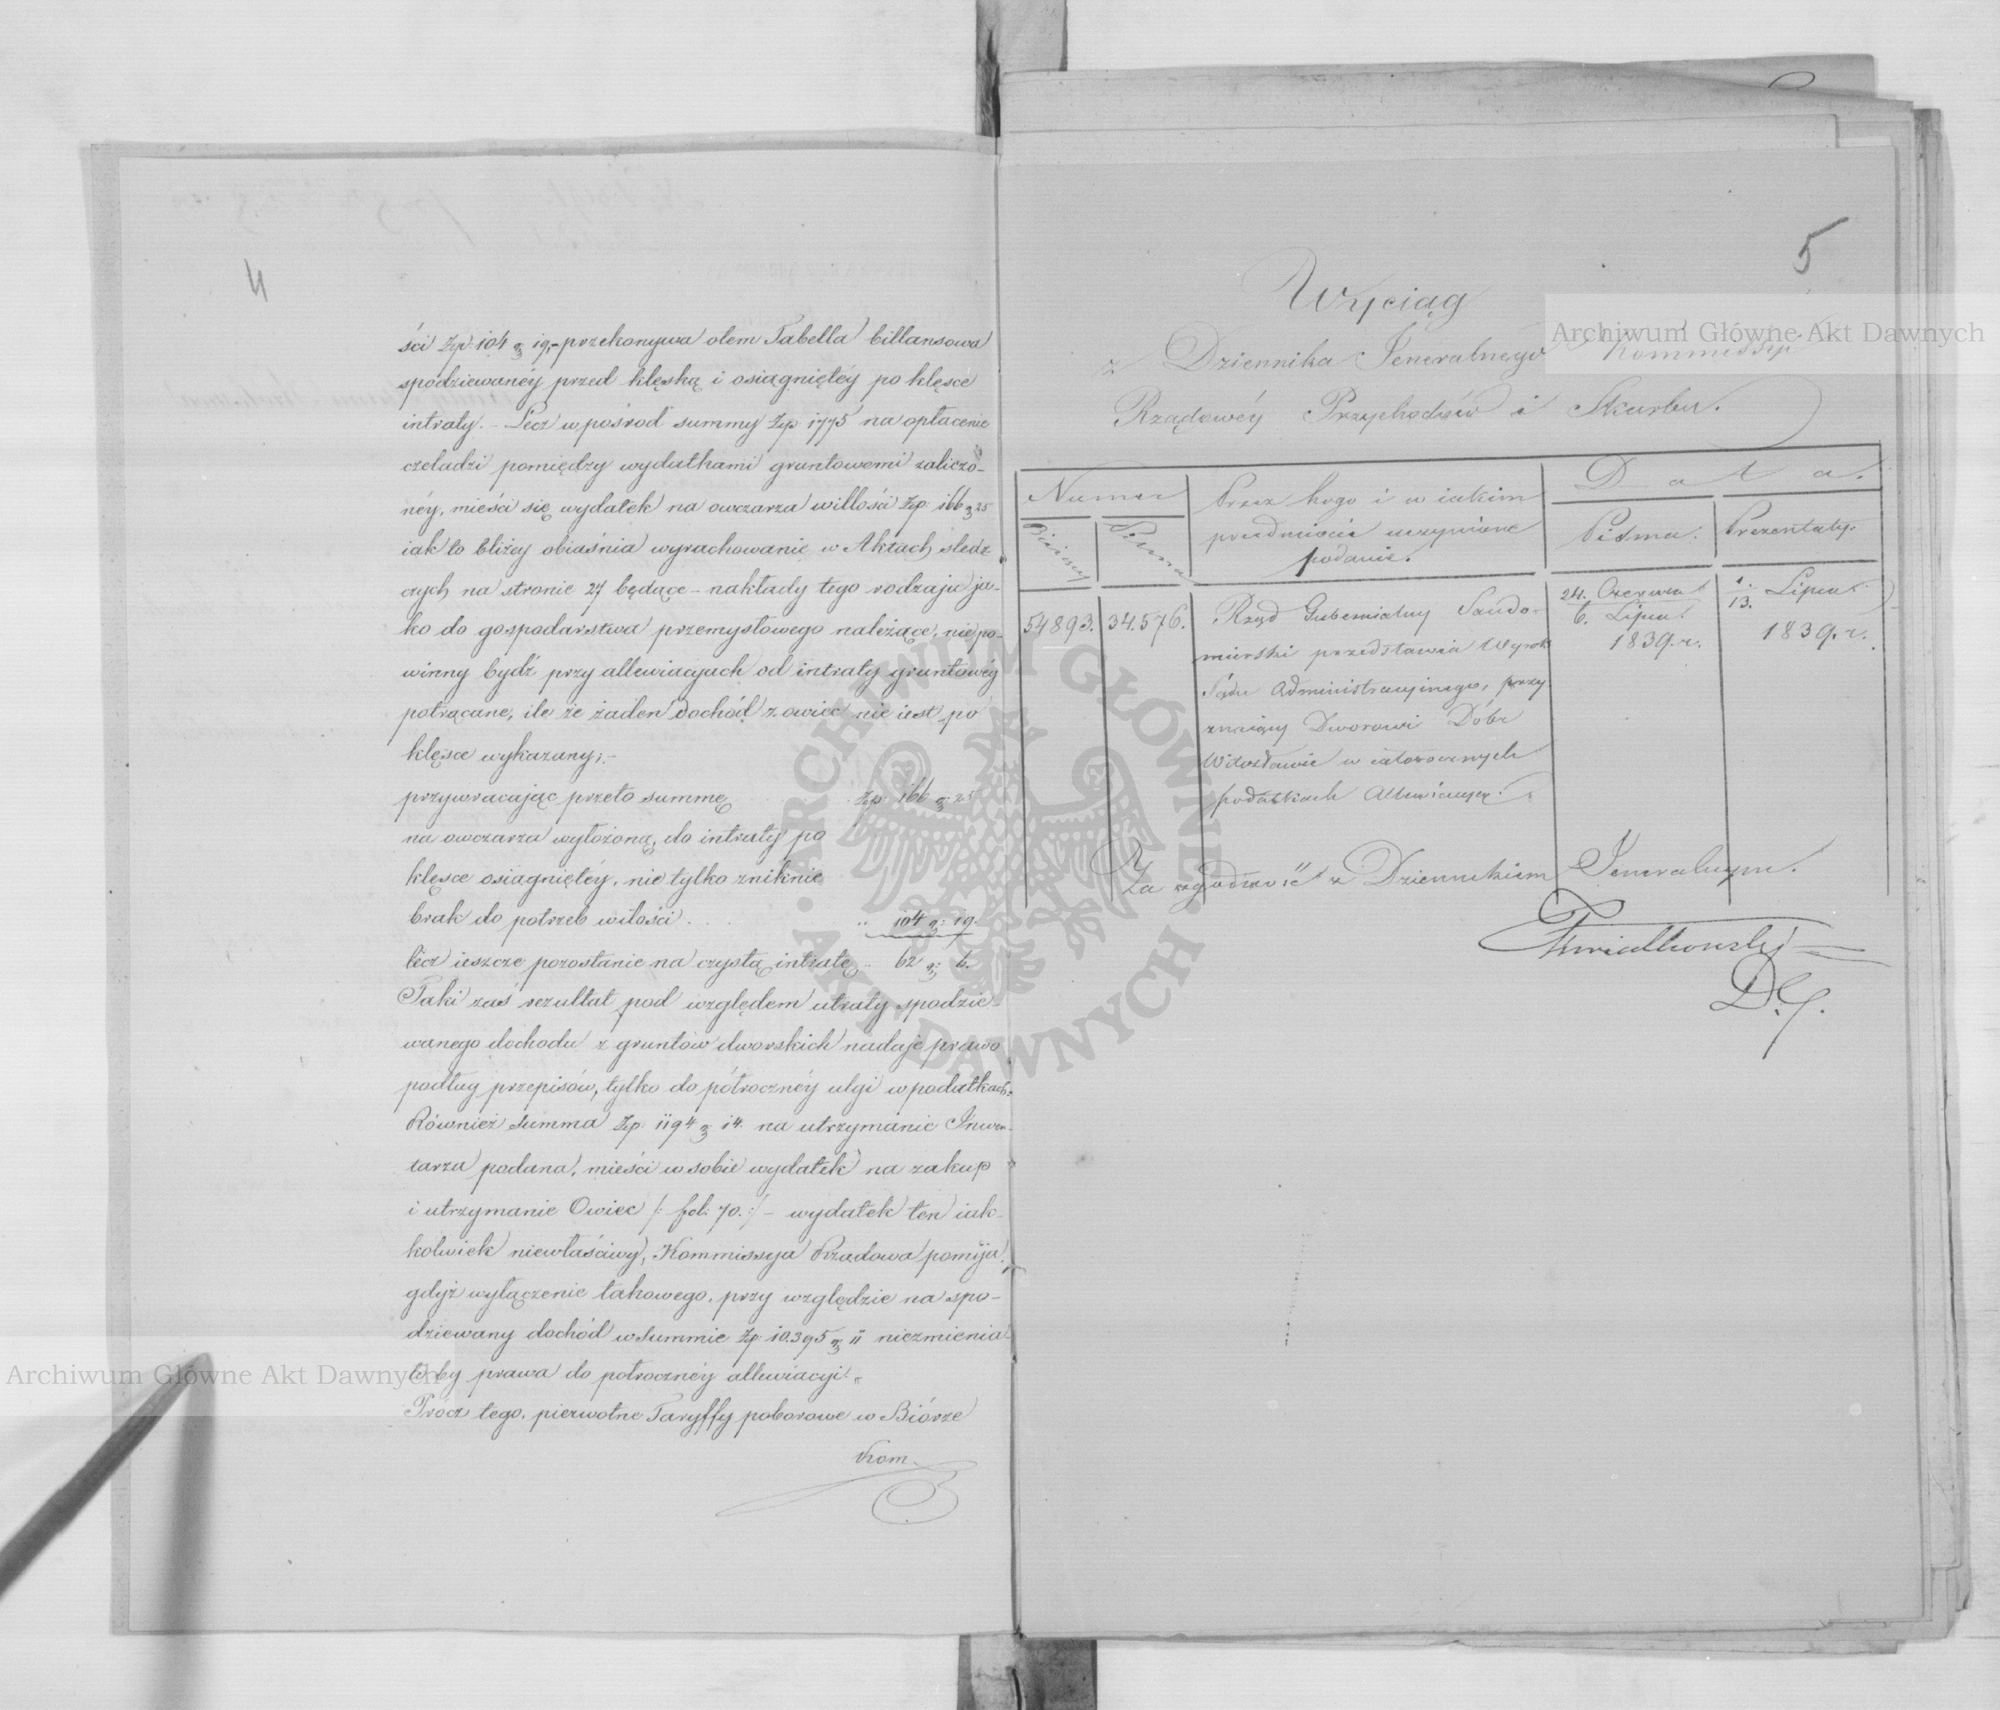 4
ści Złp. 104 gr 19,- przekonywa o tem Tabella billansowa
spodziewanéy przed klęską i osiągniętéy po klęsce
intraty. - Lecz w pośród summy Złp 1775 na opłacenie
czeladzi pomiędzy wydatkami gruntowemi zaliczo-
néy, mieści się wydatek na owczarza w illości Złp. 166 gr 25
iak to bliżey obiaśnia wyrachowanie w Aktach śledz
czych na stronie 27 będące - nakłady tego rodzaju ja-
ko do gospodarstwa przemysłowego należące, nie po-
winny bydź przy allewiacyach od intraty gruntowéy
potrącane, ile że żaden dochód z owiec nie iest po
klęsce wykazany;.-
przywracając przeto summę Złp 166 gr 25
na owczarza wyłożoną, do intraty po
klęsce osiągniętéy, nie tylko zniknie
brak do potrzeb w ilości . . „ 104 gr: 19.
lecz ieszcze pozostanie na czystą intratę „ 62 gr: 6.
Taki zaś rezultat pod względem utraty spodzie-
wanego dochodu z gruntów dworskich nadaje prawo
podług przepisów, tylko do półrocznéy ulgi w podatkach.
Również summa Złp. 1194 gr 14. na utrzymanie Inwen-
tarza podana, mieści w sobie wydatek na zakup
i utrzymanie Owiec /: fol: 70. :/ - wydatek ten iak-
kolwiek niewłaściwy, Kommissya Rządowa pomija,
gdyż wyłączenie takowego, przy względzie na spo-
dziewany dochód w summie Złp 10.395 gr 11 niezmienia
ło by prawa do półrocznéy allewiacyi.
Prócz tego, pierwotne Taryffy poborowe w Biórze
Kom.
5
Wyciąg
z Dziennika Jeneralnego Kommissyi
Rządowéy Przychodów i Skarbu.
Numer
Przez kogo i w iakim
przedmiocie uczynione
podanie.
Data.
Pisma
Pisma.
Prezentaty.
54893. 34.576. Rząd Gubernialny Sando-
mierski przedstawia Wyrok
Sądu Administracyjnego, przy
znaiący Dworowi Dóbr
w całorocznych
podatkach Allewiacyą.
24. Czerwca
6. Lipca
1839. r.
1. Lipca
13.
1839. r.
Za zgodność z Dziennikiem Jeneralnym.
Kwiatkowski
D. J.
Archiwum Główne Akt Dawnych
Archiwum Główne Akt Dawnych
ARCHIWUM GŁÓWNE AKT DAWNYCH